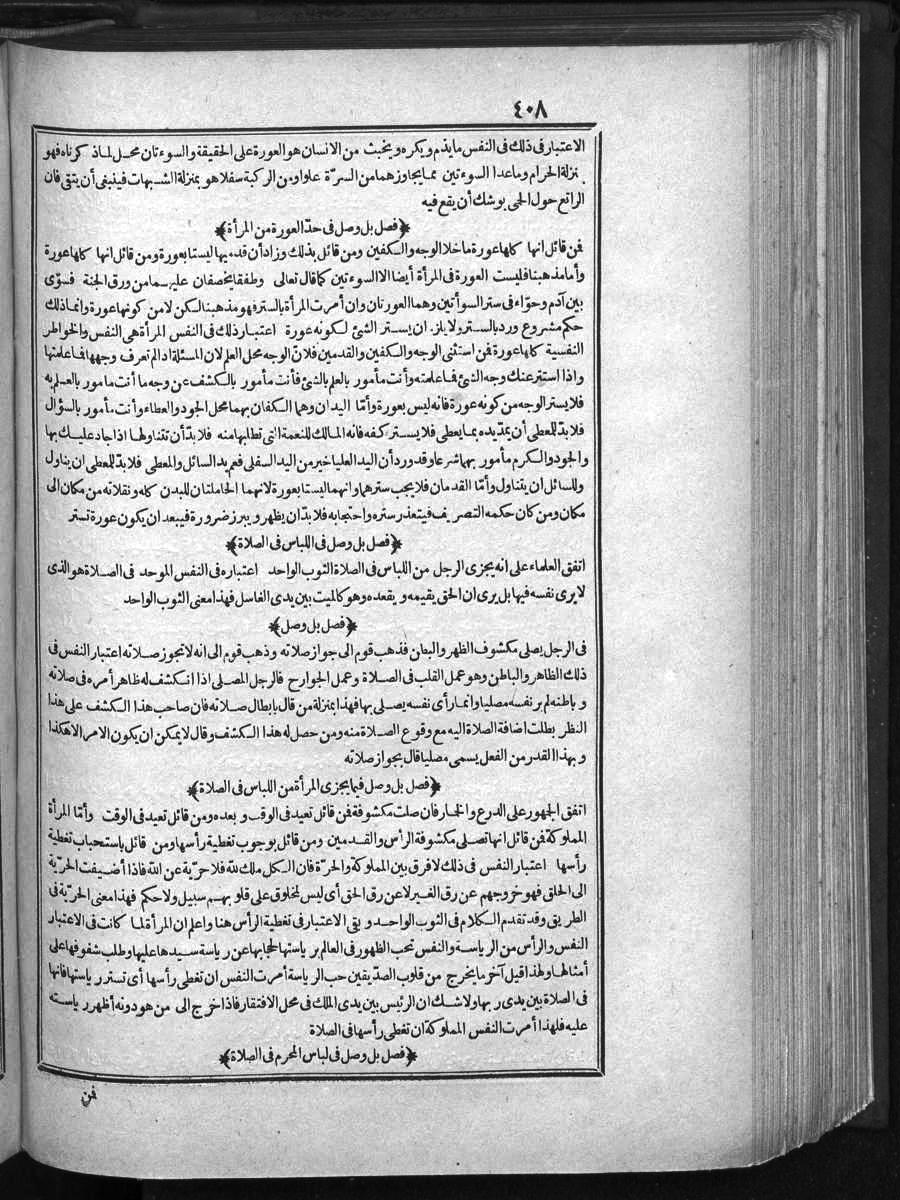 ٤٠٨
الاعتبار فى ذلك فى النفس ما يذم ويكره ويخبث من الانسان هو العورة على الحقيقة والسوءتان محل لما ذكرناه فهو
بمنزلة الحرام وما عدا السوءتين مما يجاوزهما من السرّة علوا ومن الركبة سفلا هو بمنزلة الشبهات فينبغى أن يتقى فان
الراتع حول الحمى يوشك أن يقع فيه
﴿فصل بل وصل فى حدّ العورة من المرأة﴾
فمن قائل انها كلها عورة ما خلا الوجه والكفين ومن قائل بذلك وزاد أن قدميها ليستا بعورة ومن قائل انها كلها عورة
وأما مذهبنا فليست العورة فى المرأة أيضا الا السوءتين كما قال تعالى وطفقا يخصفان عليهما من ورق الجنة فسوّى
بين آدم وحوّاء فى ستر السوأتين وهما العورتان وان أمرت المرأة بالستر فهو مذهبنا لكن لا من كونها عورة وانما ذلك
حكم مشروع ورد بالستر ولا يلزم ان يستر الشئ لكونه عورة اعتبار ذلك فى النفس المرأة هى النفس والخواطر
النفسية كلها عورة فمن استثنى الوجه والكفين والقدمين فلانّ الوجه محل العلم لان المسئلة اذا لم تعرف وجهها فما علمتها
واذا استتر عنك وجه الشئ فما علمته وأنت مأمور بالعلم بالشئ فأنت مأمور بالكشف عن وجه ما أنت مامور بالعلم به
فلا يستر الوجه من كونه عورة فانه ليس بعورة وأمّا اليدان وهما الكفان بهما محل الجود والعطاء وأنت مأمور بالسؤال
فلا بدّ للمعطى أن يمدّ يده بما يعطى فلا يستر كفه فانه المالك للنعمة التى تطلبها منه فلا بدّ أن تتناولها اذا جاد عليك بها
والجود والكرم مأمور بهما شرعا وقد ورد أن اليد العليا خير من اليد السفلى فعم يد السائل والمعطى فلا بدّ للمعطى ان يناول
وللسائل أن يتناول وأمّا القدمان فلا يجب سترهما وانهما ليستا بعورة لانهما الحاملتان للبدن كله ونقلاته من مكان الى
مكان ومن كان حكمه التصريف فيتعذر ستره واحتجابه فلا بدّ ان يظهر ويبرز ضرورة فيبعد ان يكون عورة تستر
﴿فصل بل وصل فى اللباس فى الصلاة﴾
اتفق العلماء على انه يجزى الرجل من اللباس فى الصلاة الثوب الواحد اعتباره فى النفس الموحد فى الصلاة هو الذى
لا يرى نفسه فيها بل يرى ان الحق يقيمه ويقعده وهو كالميت بين يدى الغاسل فهذا معنى الثوب الواحد
﴿فصل بل وصل﴾
فى الرجل يصلى مكشوف الظهر والبطن فذهب قوم الى جواز صلاته وذهب قوم الى انه لا تجوز صلاته اعتبار النفس فى
ذلك الظاهر والباطن وهو عمل القلب فى الصلاة وعمل الجوارح فالرجل المصلى اذا انكشف له ظاهر أمره فى صلاته
وباطنه لم ير نفسه مصليا وانما رأى نفسه يصلى بها فهذا بمنزلة من قال بابطال صلاته فان صاحب هذا الكشف على هذا
النظر بطلت اضافة الصلاة اليه مع وقوع الصلاة منه ومن حصل له هذا الكشف وقال لا يمكن ان يكون الامر الا هكذا
وبهذا القدر من الفعل يسمى مصليا قال بجواز صلاته
﴿فصل بل وصل فيما يجزى المرأة من اللباس فى الصلاة﴾
اتفق الجمهور على الدرع والخمار فان صلت مكشوفة فمن قائل تعيد فى الوقت وبعده ومن قائل تعيد فى الوقت وأمّا المرأة
المملوكة فمن قائل انها تصلى مكشوفة الرأس والقدمين ومن قائل بوجوب تغطية رأسها ومن قائل باستحباب تغطية
رأسها اعتبار النفس فى ذلك لا فرق بين المملوكة والحرّة فان الكل ملك لله فلا حرّية عن الله فاذا أضيفت الحرّية
الى الخلق فهو خروجهم عن رق الغير لا عن رق الحق أى ليس لمخلوق على قلوبهم سبيل ولا حكم فهذا معنى الحرّية فى
الطريق وقد تقدم الكلام فى الثوب الواحد وبقى الاعتبار فى تغطية الرأس هنا واعلم ان المرأة لما كانت فى الاعتبار
النفس والرأس من الرياسة والنفس تحب الظهور فى العالم برياستها لحجابها عن رياسة سيدها عليها وطلب شفوفها على
أمثالها ولهذا قيل آخر ما يخرج من قلوب الصدّيقين حب الرياسة أمرت النفس ان تغطى رأسها أى تستر رياستها فانها
فى الصلاة بين يدى ربها ولا شك ان الرئيس بين يدى الملك فى محل الافتقار فاذا خرج الى من هو دونه أظهر رياسته
عليه فلهذا أمرت النفس المملوكة ان تغطى رأسها فى الصلاة
﴿فصل بل وصل فى لباس المحرم فى الصلاة﴾
فمن